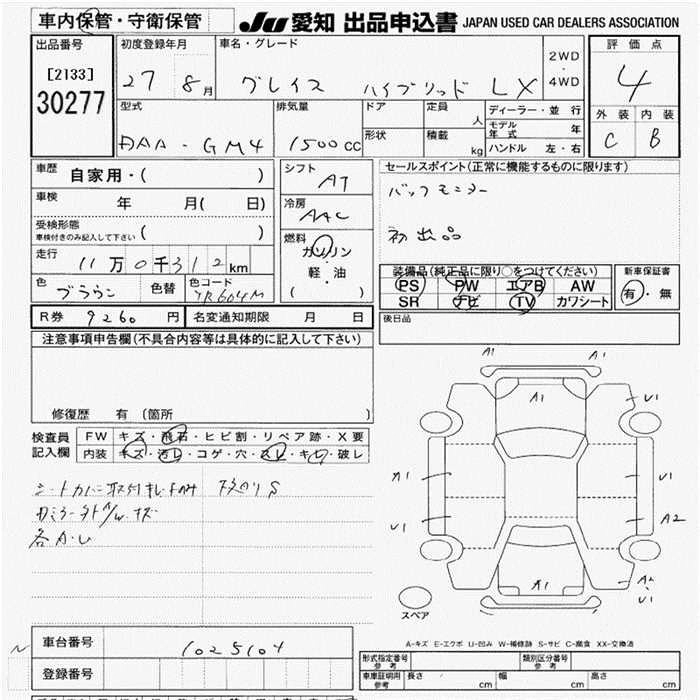 車内保管・守衛保管 JU 愛知 出品申込書 JAPAN USED CAR DEALERS ASSOCIATION
出品番号 初度登録年月 車名・グレード 評価点
[2133] 27 8月 グレイス ハイブリッド LX 2WD・4WD 4
30277
型式 排気量 ドア 定員 人 ディーラー・並行 外装 内装
DAA-GM4 1500cc 形状 積載 kg モデル年式 年 C B
ハンドル 左・右
車歴 自家用・( ) シフト AT セールスポイント(正常に機能するものに限ります)
車検 年 月( 日) 冷房 AAC バックモニター
受検形態 車検付きのみ記入して下さい ( ) 初出品
走行 11万0千312km 燃料 ガソリン・軽・油 ( )
装備品(純正品に限り○をつけてください) 新車保証書
色 ブラウン 色替 色コード YR604M PS PW エアB AW 有・無
SR ナビ TV カワシート
R券 9260円 名変通知期限 月 日 後日品
注意事項申告欄(不具合内容等は具体的に記入して下さい)
修復歴 有 (箇所 )
検査員記入欄 FW キズ・飛石・ヒビ割・リペア跡・X要
内装 キズ・汚レ・コゲ・穴・スレ・キレ・破レ
各A・U
A1 A1
A1 U1
A1
U1 A2
A1 A2
U1
スペア
車台番号 1025104
A-キズ E-エクボ U-凹み W-補修跡 S-サビ C-腐食 XX-交換済
登録番号
形式指定番号 参考 類別区分番号 参考
車庫証明用 参考 長さ cm 幅 cm 高さ cm